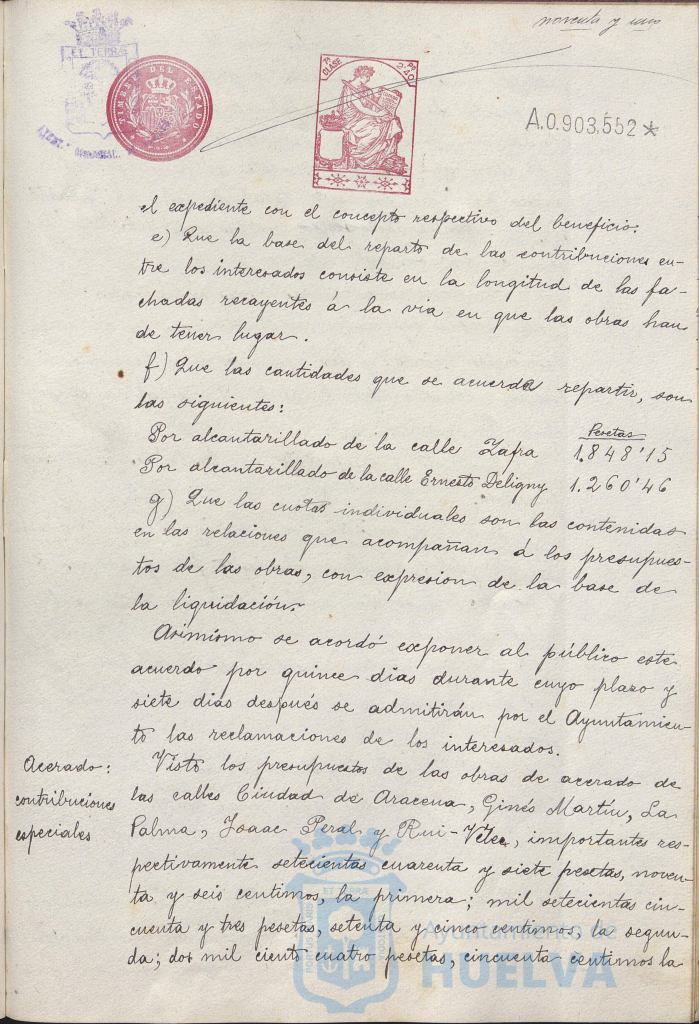 noventa y uno
EL TERRÆ
TIMBRE DEL ESTADO
7ª CLASE
2'40 Ps
A.0.903,552*
el expediente con el concepto respectivo del beneficio:
e) Que la base del reparto de las contribuciones en-
tre los interesados consiste en la longitud de las fa-
chadas recayentes á la via en que las obras han
de tener lugar.
f) Que las cantidades que se acuerda repartir, son
las siguientes:
Pesetas
Por alcantarillado de la calle Zafra 1.848'15
Por alcantarillado de la calle Ernesto Deligny 1.260'46
g) Que las cuotas individuales son las contenidas
en las relaciones que acompañan á los presupues-
tos de las obras, con expresion de la base de
la liquidación.
Asimismo se acordó exponer al público este
acuerdo por quince dias durante cuyo plazo y
siete dias después se admitirán por el Ayuntamien-
to las reclamaciones de los interesados.
Acerado:
contribuciones
especiales
Visto los presupuestos de las obras de acerado de
las calles Ciudad de Aracena, Ginés Martin, La
Palma, Isaac Peral y Rui-Velez, importantes res-
pectivamente setecientas cuarenta y siete pesetas, noven-
ta y seis centimos, la primera; mil setecientas cin-
cuenta y tres pesetas, setenta y cinco centimos, la segun-
da; dos mil ciento cuatro pesetas, cincuenta centimos la
Ayuntamiento de
HUELVA